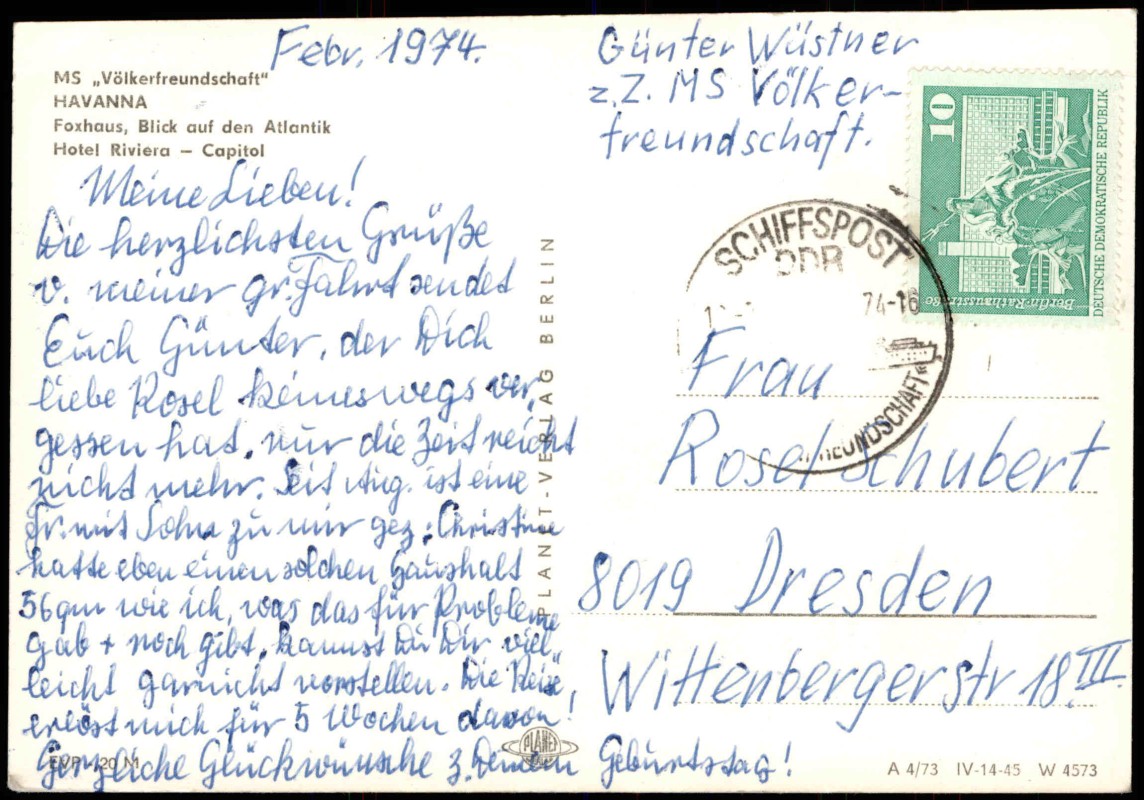 Febr. 1974.
MS „Völkerfreundschaft"
HAVANNA
Foxhaus, Blick auf den Atlantik
Hotel Riviera – Capitol
Meine Lieben!
Die herzlichsten Grüße
v. meiner gr. Fahrt sendet
Euch Günter, der Dich
liebe Rosel keineswegs ver,
gessen hat, nur die Zeit reicht
nicht mehr. Seit Aug. ist eine
Fr. mit Sohn zu mir gez; Christine
hatte eben einen solchen Haushalt
56qm wie ich, was das für Probleme
gab + noch gibt, kannst Du Dir viel„
leicht garnicht vorstellen. Die Reise,
erlöst mich für 5 Wochen davon!
Herzliche Glückwünsche z. Deinem Geburtstag!
EVP 20 M
PLANET-VERLAG BERLIN
PLANET
Günter Wüstner
z.Z. MS Völker-
freundschaft.
10
DEUTSCHE DEMOKRATISCHE REPUBLIK
Berlin-Rathausstraße
SCHIFFSPOST
DDR
74-16
FREUNDSCHAFT"
Frau
Rosel Schubert
8019 Dresden
Wittenbergerstr 18 III.
A 4/73 IV-14-45 W 4573